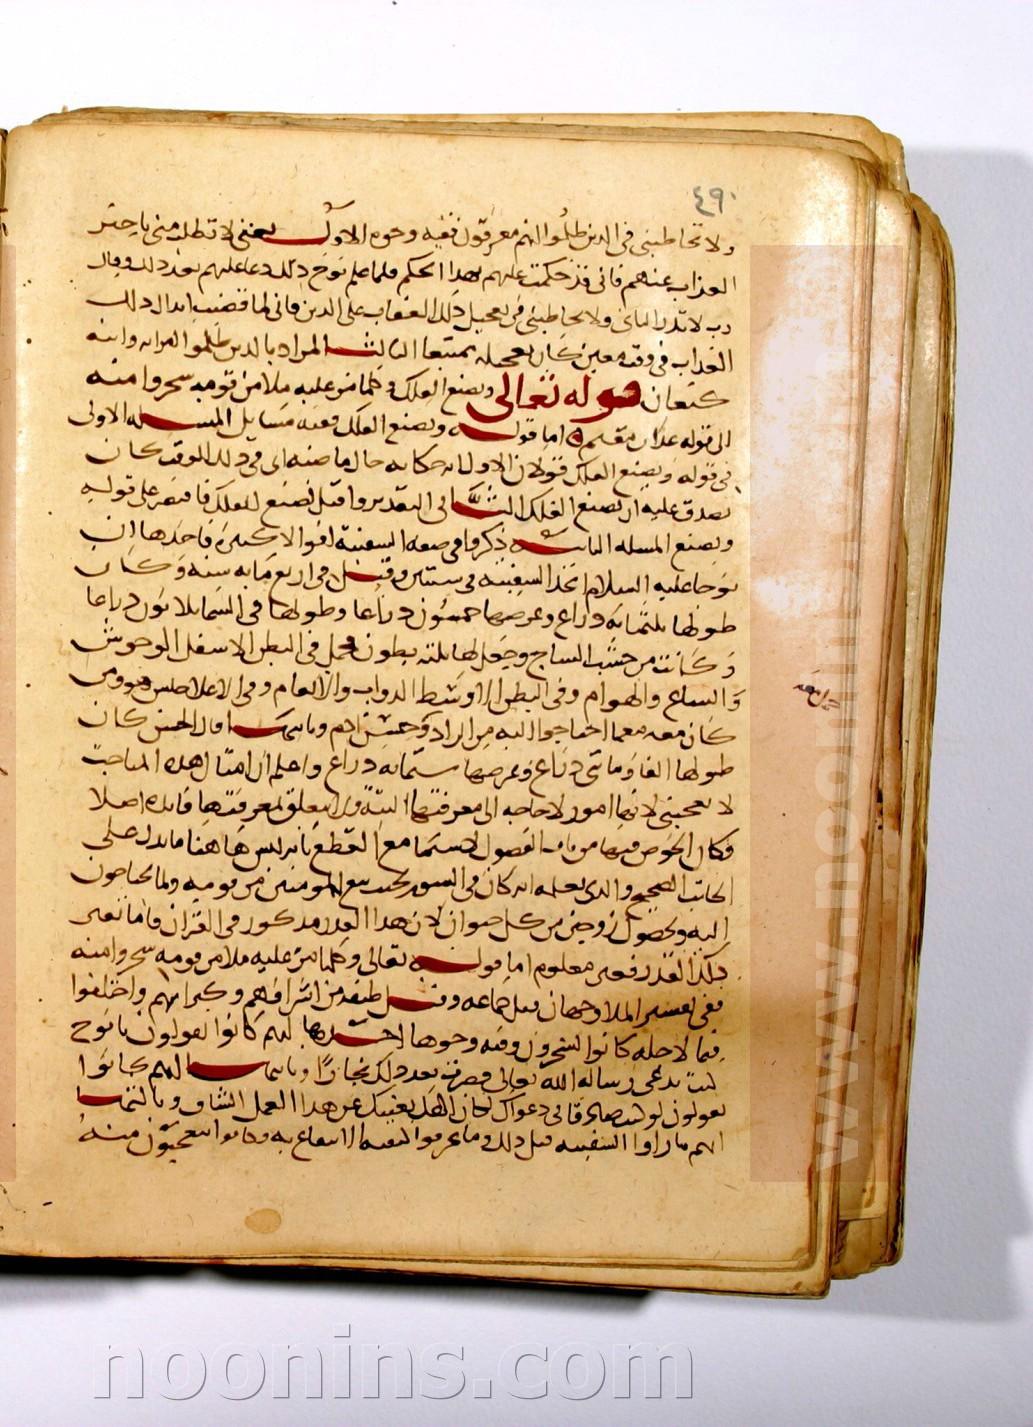 ٤٩٠
ولا تخاطبني في الذين ظلموا انهم مغرقون ففيه وجوه الاول يعني لا تطلب مني تاخير
العذاب عنهم فاني قد حكمت عليهم بهذا الحكم فلما علم نوح ذلك دعا عليهم بعد ذلك وقال
رب لا تذر الثاني ولا تخاطبني في تعجيل ذلك العقاب على الذين فاني لما قضيت انزال ذلك
العذاب في وقت معين كان تعجيله ممتنعا الثالث المراد بالذين ظلموا امراته وابنه
كنعان قوله تعالى ويصنع الفلك وكلما مر عليه ملا من قومه سخروا منه
الى قوله عذاب مقيم اما قوله ويصنع الفلك ففيه مسايل المسله الاولى
في قوله ويصنع الفلك قولان الاول انه حكايه حال ماضيه اي في ذلك الوقت كان
يصدق عليه انه يصنع الفلك الثاني التقدير واقبل يصنع الفلك فاقتصر على قوله
ويصنع المسله الثانيه ذكروا في صفه السفينة اقوالا كثيرة فاحدها ان
نوحا عليه السلام اتخذ السفينه في سنتين وقيل في اربع مايه سنه وكان
طولها ثلثمايه ذراع وعرضها خمسون ذراعا وطولها في السما ثلاثون ذراعا
وكانت من خشب الساج وجعل لها ثلثه بطون فحمل في البطن الاسفل الوحوش
والسباع والهوام وفي البطن الاوسط الدواب والانعام وفي الاعلا جلس هو ومن
كان معه مع ما احتاجوا اليه من الزاد وحسن ادم وثانيها قال الحسن كان
طولها الفا وماتي ذراع وعرضها ستمايه ذراع واعلم ان امثال هذه المباحث
لا تعجبني لانها امور لا حاجه الى معرفتها البتة ولا يتعلق بمعرفتها فايده اصلا
فكان الخوض فيها من باب الفضول لا سيما مع القطع بانه ليس هاهنا ما يدل على
الجانب الصحيح والذي نعلمه انه كان في السعه بحيث يسع المومنين من قومه ولما يحتاجون
اليه ويحصول زوجين من كل حيوان لان هذا القدر مذكور في القران فاما تعين
ذلك القدر فغير معلوم اما قوله تعالى وكلما مر عليه ملا من قومه سخروا منه
ففي تفسير الملا وجهان قيل جماعه وقيل طبقه من اشرافهم وكبرائهم واختلفوا
فيما لاجله كانوا يسخرون وفيه وجوها احدها انهم كانوا يقولون يا نوح
كنت تدعي رسالة الله تعالى فصرت بعد ذلك نجارا وثانيها انهم كانوا
يقولون لو كنت صادقا في دعواك لكان الهك يغنيك عن هذا العمل الشاق وثالثها
انهم ما راوا السفينه قبل ذلك وما عرفوا كيفيه الانتفاع به وكانوا يتعجبون منه
www.noonins.com
noonins.com